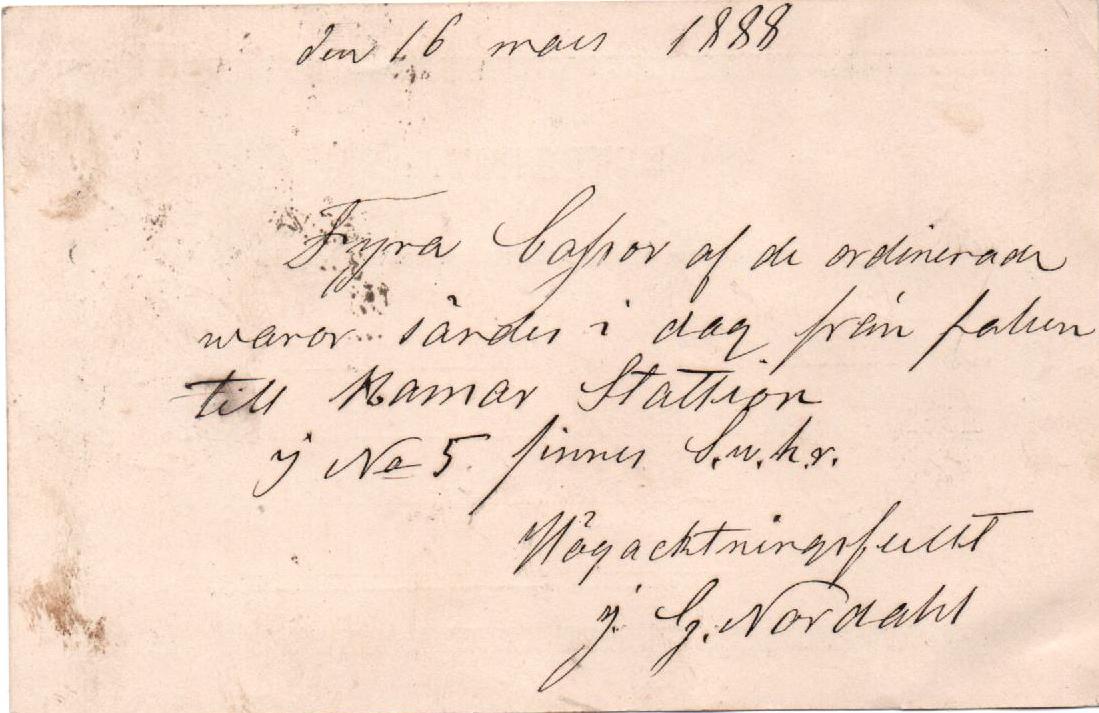 den 16 mars 1888
Fyra Cassor af de ordinerade
waror sändes i dag från falun
till Hamar Stattion
ij No 5 finnes S.w.k.r.
Högacktningsfullt
j. G. Nordahl